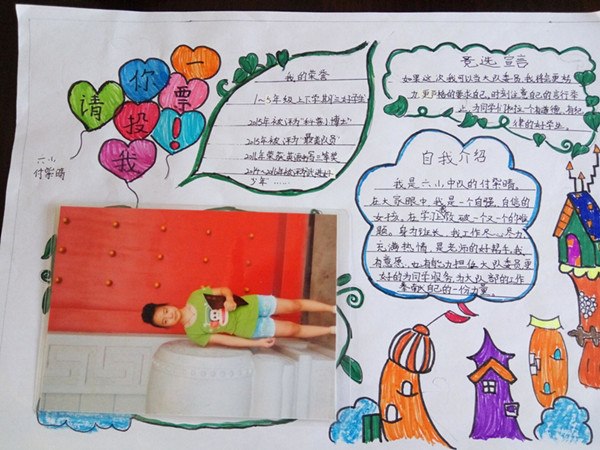 请你投我一票!
六小
付紫晴
我的荣誉
1~5年级上下学期三好学生
2015年被评为“科普小博士”
2015年被评为“最美队员”
2016年荣获英语书写二等奖
少年”……
竞选宣言
如果这次我可以当大队委员,我将会更努
力,更严格的要求自己,时刻注意自己的言行举
律的好学生。
自我介绍
我是六小中队的付紫晴。
在大家眼中,我是一个自强、自信的
女孩。在学习上攻破一个又一个的难
题。身为班长,我工作尽心尽力,
充满热情,是老师的好帮手。我
有意愿,也有能力担任大队委员,更
好的为同学服务,为大队部的工作
奉献自己的一份力量。